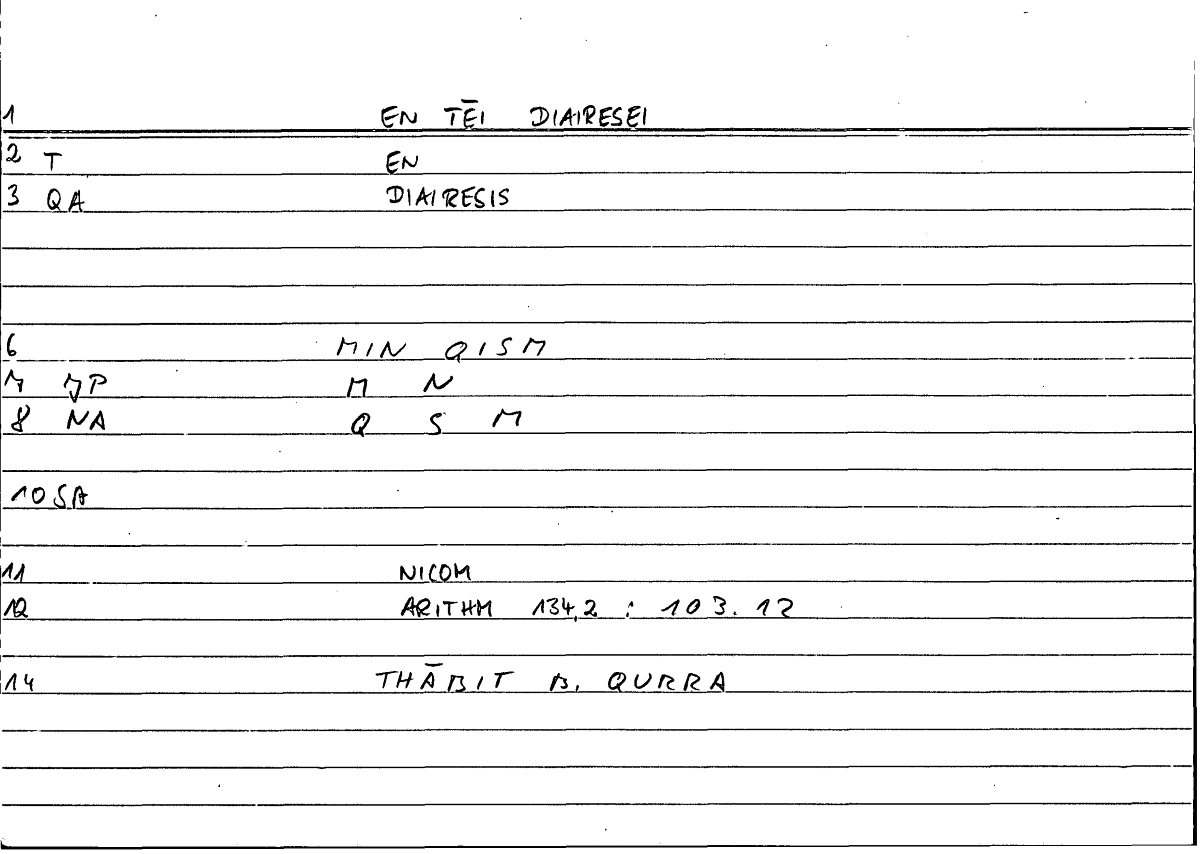 1 EN TĒI DIAIRESEI
2 T EN
3 QA DIAIRESIS
6 MIN QISM
7 JP M N
8 NA Q S M
10 SA
11 NICOM
12 ARITHM 134,2 : 103.12
14 THĀBIT B. QURRA